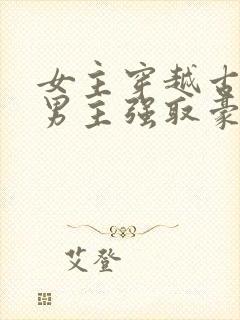 女主穿越古
男主强取豪
艾登